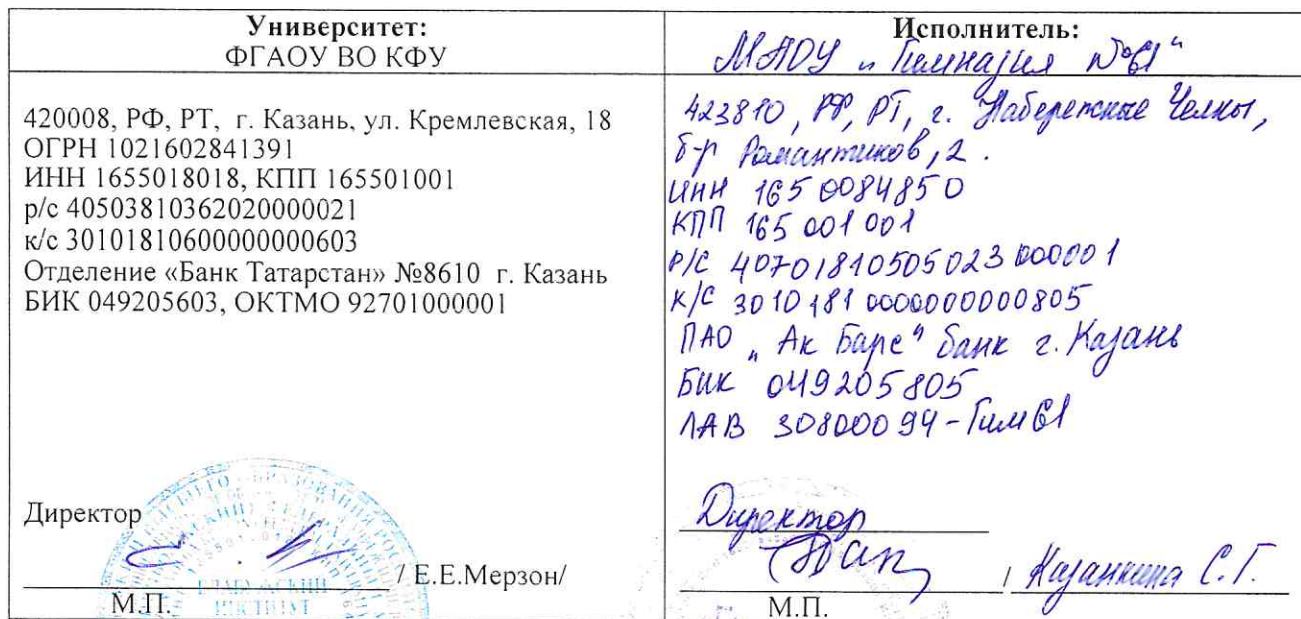 Университет:
ФГАОУ ВО КФУ
420008, РФ, РТ, г. Казань, ул. Кремлевская, 18
ОГРН 1021602841391
ИНН 1655018018, КПП 165501001
р/с 40503810362020000021
к/с 30101810600000000603
Отделение «Банк Татарстан» №8610 г. Казань
БИК 049205603, ОКТМО 92701000001
Директор
/ Е.Е.Мерзон/
М.П.
ИНСТИТУТ
Исполнитель:
МАОУ „Гимназия №61"
423810, РФ, РТ, г. Набережные Челны,
б-р Романтиков, 2.
ИНН 1650084850
КПП 165001001
Р/С 40701810505023000001
К/С 30101810000000000805
ПАО „Ак Барс" банк г. Казань
БИК 049205805
ЛАВ 30800094-Гим61
Директор
/ Казанкина С.Г.
М.П.